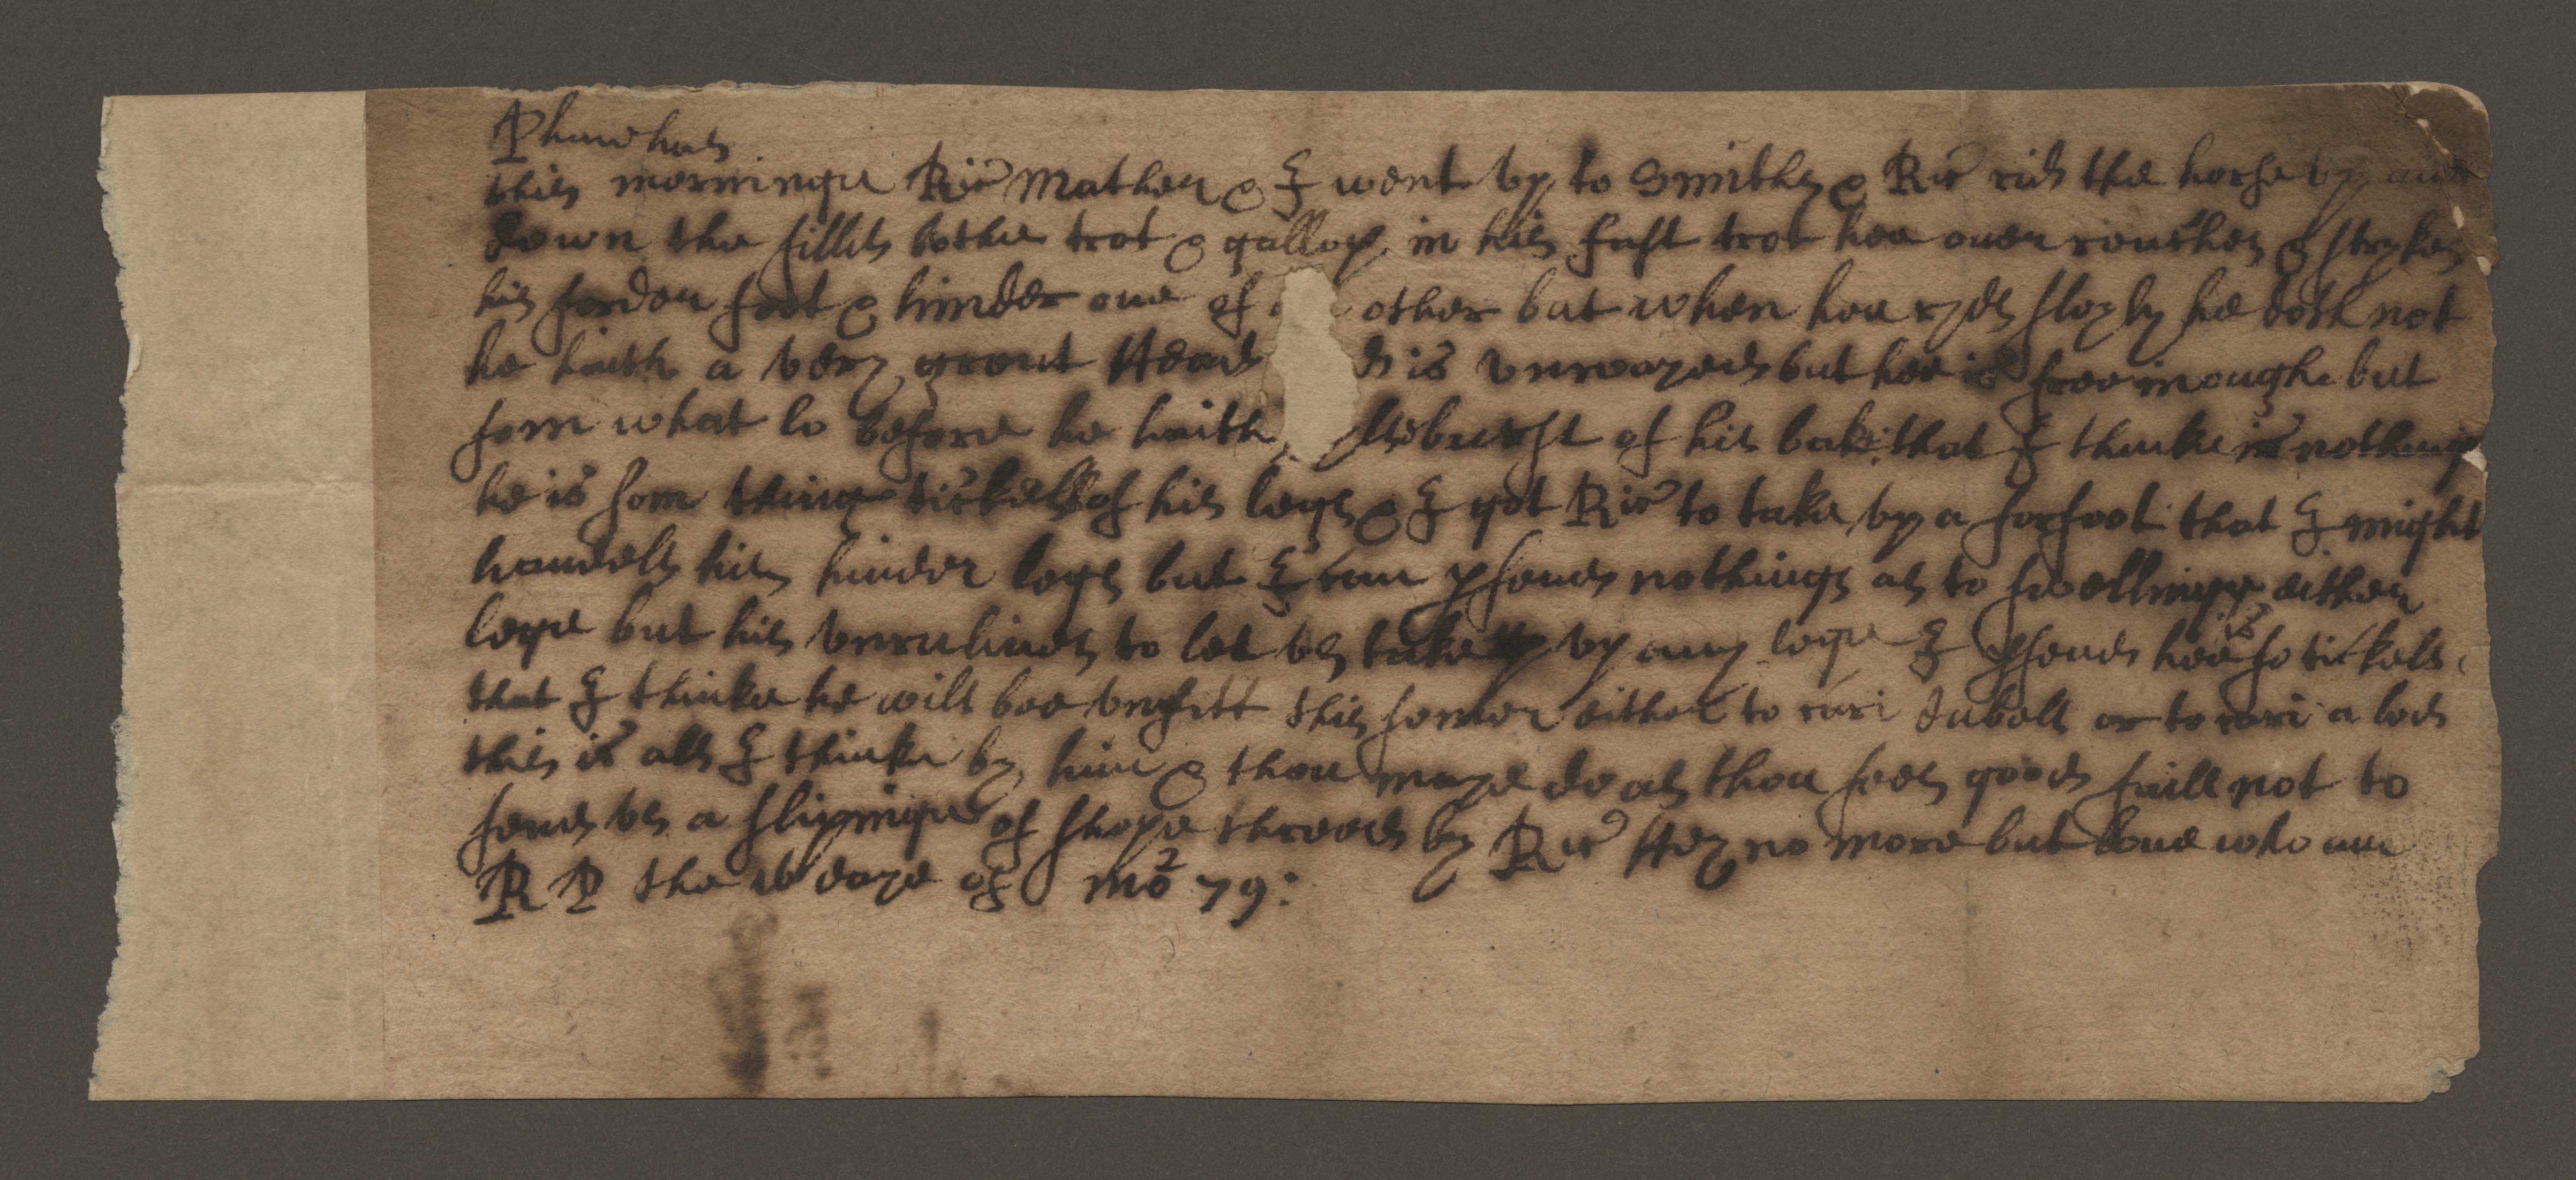 Phinehas
this morninge Ric Mather & I went vp to Smiths & Ric rid the horse vp and
down the filld bothe trot & gallop in his fast trot hee ouer rouches & strykes
his forder foot & hinder one of other but when hee ryds sloyly he doth not
he haith a very great Head d is vnwayed but hee is free inough but
som what lo before he haith burst of his bake that I thinke is nothing
he is som thing tickell of his legs & I got Ric to take vp a forfoot that I might
handell his hinder legs but I can pseud nothing as to swellinge either
lege but his vnrulines to let vs take vp any lege I pseud hee is so tickell
that I thinke he will bee vnfitt this somer either to cari dubell or to cari a lod
this is all I thinke by him & thou maye do as thou sees good faill not to
send vs a slippinge of shope threed by Ric Hey no more but loue who am
R P the daye of mo 2 79: